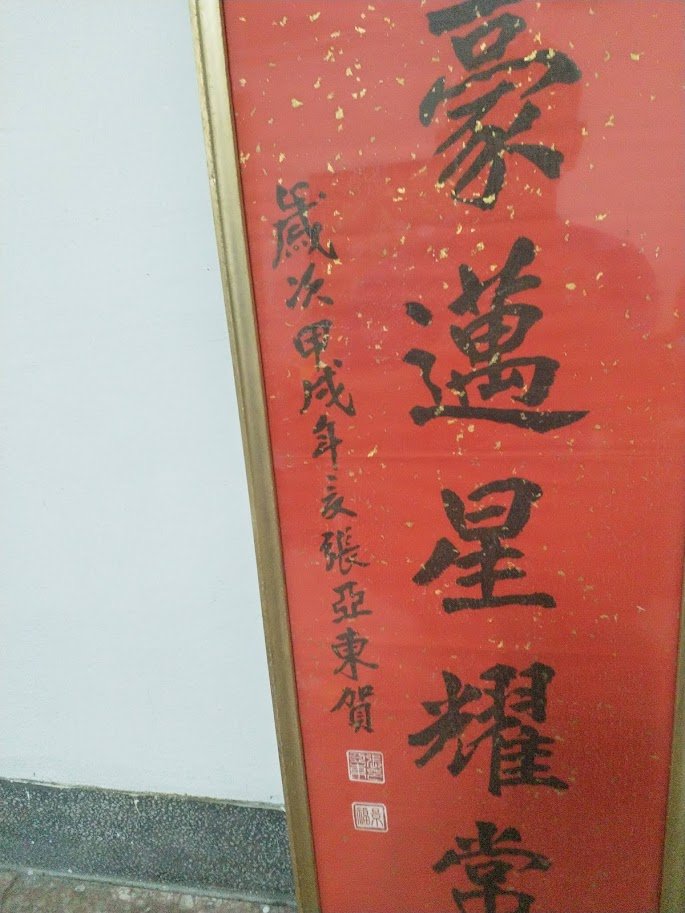 豪邁星耀常
歲次甲戌年張亞東賀